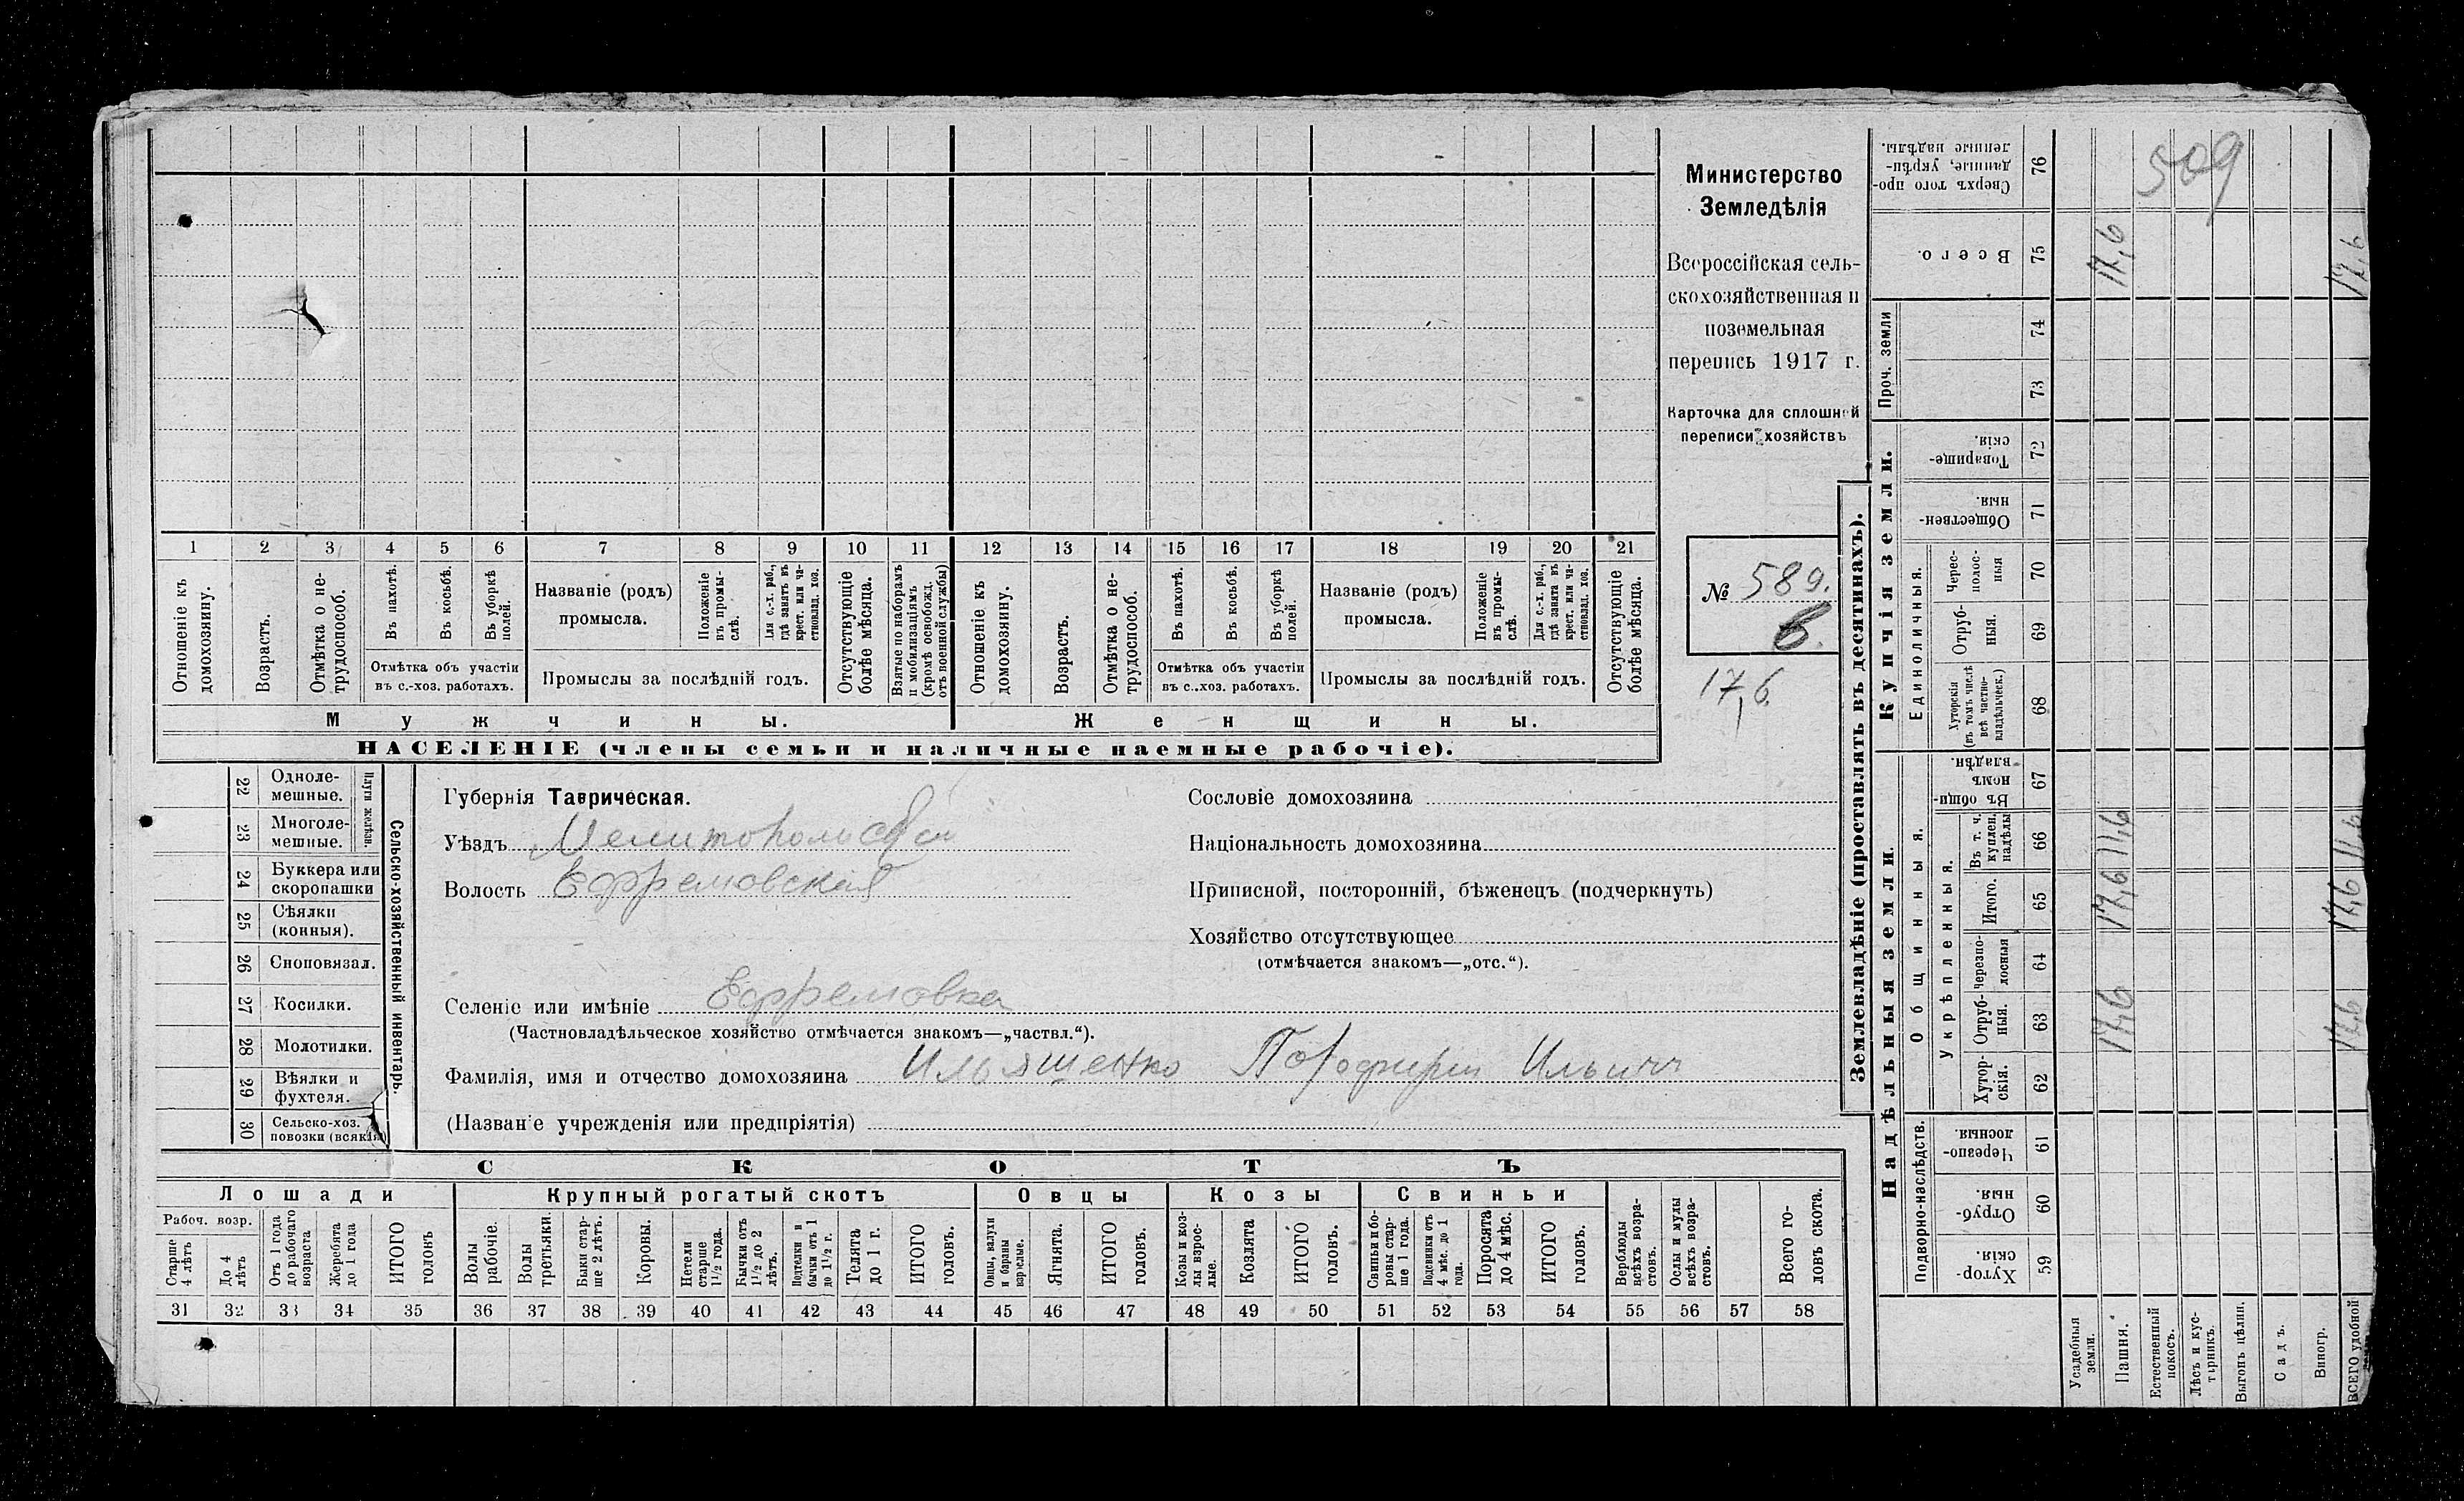 Министерство
Земледѣлія
Всероссійская сель-
скохозяйственная и
поземельная
перепись 1917 г.
Карточка для сплошной
переписи хозяйствъ
№ 589.
6.
17,6.
1 2 3 4 5 6 7 8 9 10 11 12 13 14 15 16 17 18 19 20 21
Отношеніе къ
домохозяину.
Возрастъ.
Отмѣтка о не-
трудоспособ.
Въ пахотѣ.
Въ косьбѣ.
Въ уборкѣ
полей.
Отмѣтка объ участіи
въ с.-хоз. работахъ.
Названіе (родъ)
промысла.
Положеніе
въ промы-
слѣ.
Для с.-х. раб.,
гдѣ занятъ въ
крест. или ча-
стновлад. хоз.
Промыслы за послѣдній годъ.
Отсутствующіе
болѣе мѣсяца.
Взятые по наборамъ
и мобилизаціямъ
(кромѣ освобожд.
отъ военной службы)
Отношеніе къ
домохозяину.
Возрастъ.
Отмѣтка о не-
трудоспособ.
Въ пахотѣ.
Въ косьбѣ.
Въ уборкѣ
полей.
Отмѣтка объ участіи
въ с..хоз. работахъ.
Названіе (родъ)
промысла.
Положеніе
въ промы-
слѣ.
Для с.-х. раб.,
гдѣ занята въ
крест. или ча-
стновлад. хоз.
Промыслы за послѣдній годъ.
Отсутствующіе
болѣе мѣсяца.
Мужчины. Женщины.
НАСЕЛЕНІЕ (члены семьи и наличные наемные рабочіе).
Сельско-хозяйственный инвентарь.
Плуги желѣзн.
22 Одноле-
мешные.
23 Многоле-
мешные.
24 Буккера или
скоропашки
25 Сѣялки
(конныя).
26 Сноповязал.
27 Косилки.
28 Молотилки.
29 Вѣялки и
фухтеля.
30 Сельско-хоз.
повозки (всякія)
Губернія Таврическая.
Уѣздъ Мелитопольскій
Волость Ефремовская
Селеніе или имѣніе Ефремовка
(Частновладѣльческое хозяйство отмѣчается знакомъ—„частвл.“).
Фамилія, имя и отчество домохозяина Ильяшенко Порфирий Ильич
(Названіе учрежденія или предпріятія)
Сословіе домохозяина
Національность домохозяина
Приписной, посторонній, бѣженецъ (подчеркнуть)
Хозяйство отсутствующее
(отмѣчается знакомъ—„отс.“).
СКОТЪ
Лошади Крупный рогатый скотъ Овцы Козы Свиньи
Рабоч. возр.
Старше
4 лѣтъ
До 4
лѣтъ
Отъ 1 года
до рабочаго
возраста
Жеребята
до 1 года
ИТОГО
головъ
Волы
рабочіе.
Волы
третьяки.
Быки стар-
ше 2 лѣтъ.
Коровы.
Нетели
старше
1½ года.
Бычки отъ
1½ до 2
лѣтъ.
Подтелки и
бычки отъ 1
до 1½ г.
Телята
до 1 г.
ИТОГО
головъ.
Овцы, валухи
и бараны
взрослые.
Ягнята.
ИТОГО
головъ.
Козы и коз-
лы взрос-
лые.
Козлята
ИТОГО
головъ.
Свиньи и бо-
ровы стар-
ше 1 года.
Подсвинки отъ
4 мѣс. до 1
года.
Поросята
до 4 мѣс.
ИТОГО
головъ.
Верблюды
всѣхъ возра-
стовъ.
Ослы и мулы
всѣхъ возра-
стовъ.
Всего го-
ловъ скота.
31 32 33 34 35 36 37 38 39 40 41 42 43 44 45 46 47 48 49 50 51 52 53 54 55 56 57 58
Землевладѣніе (проставлять въ десятинахъ).
Надѣльныя земли. Купчія земли. Проч. земли
Подворно-наслѣдств. Общинныя. Единоличныя.
Укрѣпленныя.
Хутор-
скія.
59
Отруб-
ныя.
60
Черезпо-
лосныя.
61
Хутор-
скія.
62
Отруб-
ныя.
63
Черезпо-
лосныя
64
Итого.
65
Въ т. ч.
куплен.
надѣлы
66
Въ общин-
номъ
владѣн.
67
Хуторскія
(въ томъ числѣ
всѣ частно-
владѣльческ.)
68
Отруб-
ныя.
69
Черес-
полос-
ныя
70
Обществен-
ныя.
71
Товарище-
скія.
72
73
74
Всего.
75
Сверхъ того про-
данные, укрѣп-
ленные надѣлы.
76
Усадебныя
земли.
Пашня. 17,6 17,6 11,6 17,6
Естественный
покосъ.
Лѣсъ и кус-
тарникъ.
Выгонъ цѣлин.
Садъ.
Виногр.
ВСЕГО удобной 17,6 17,6 11,6 17,6
509